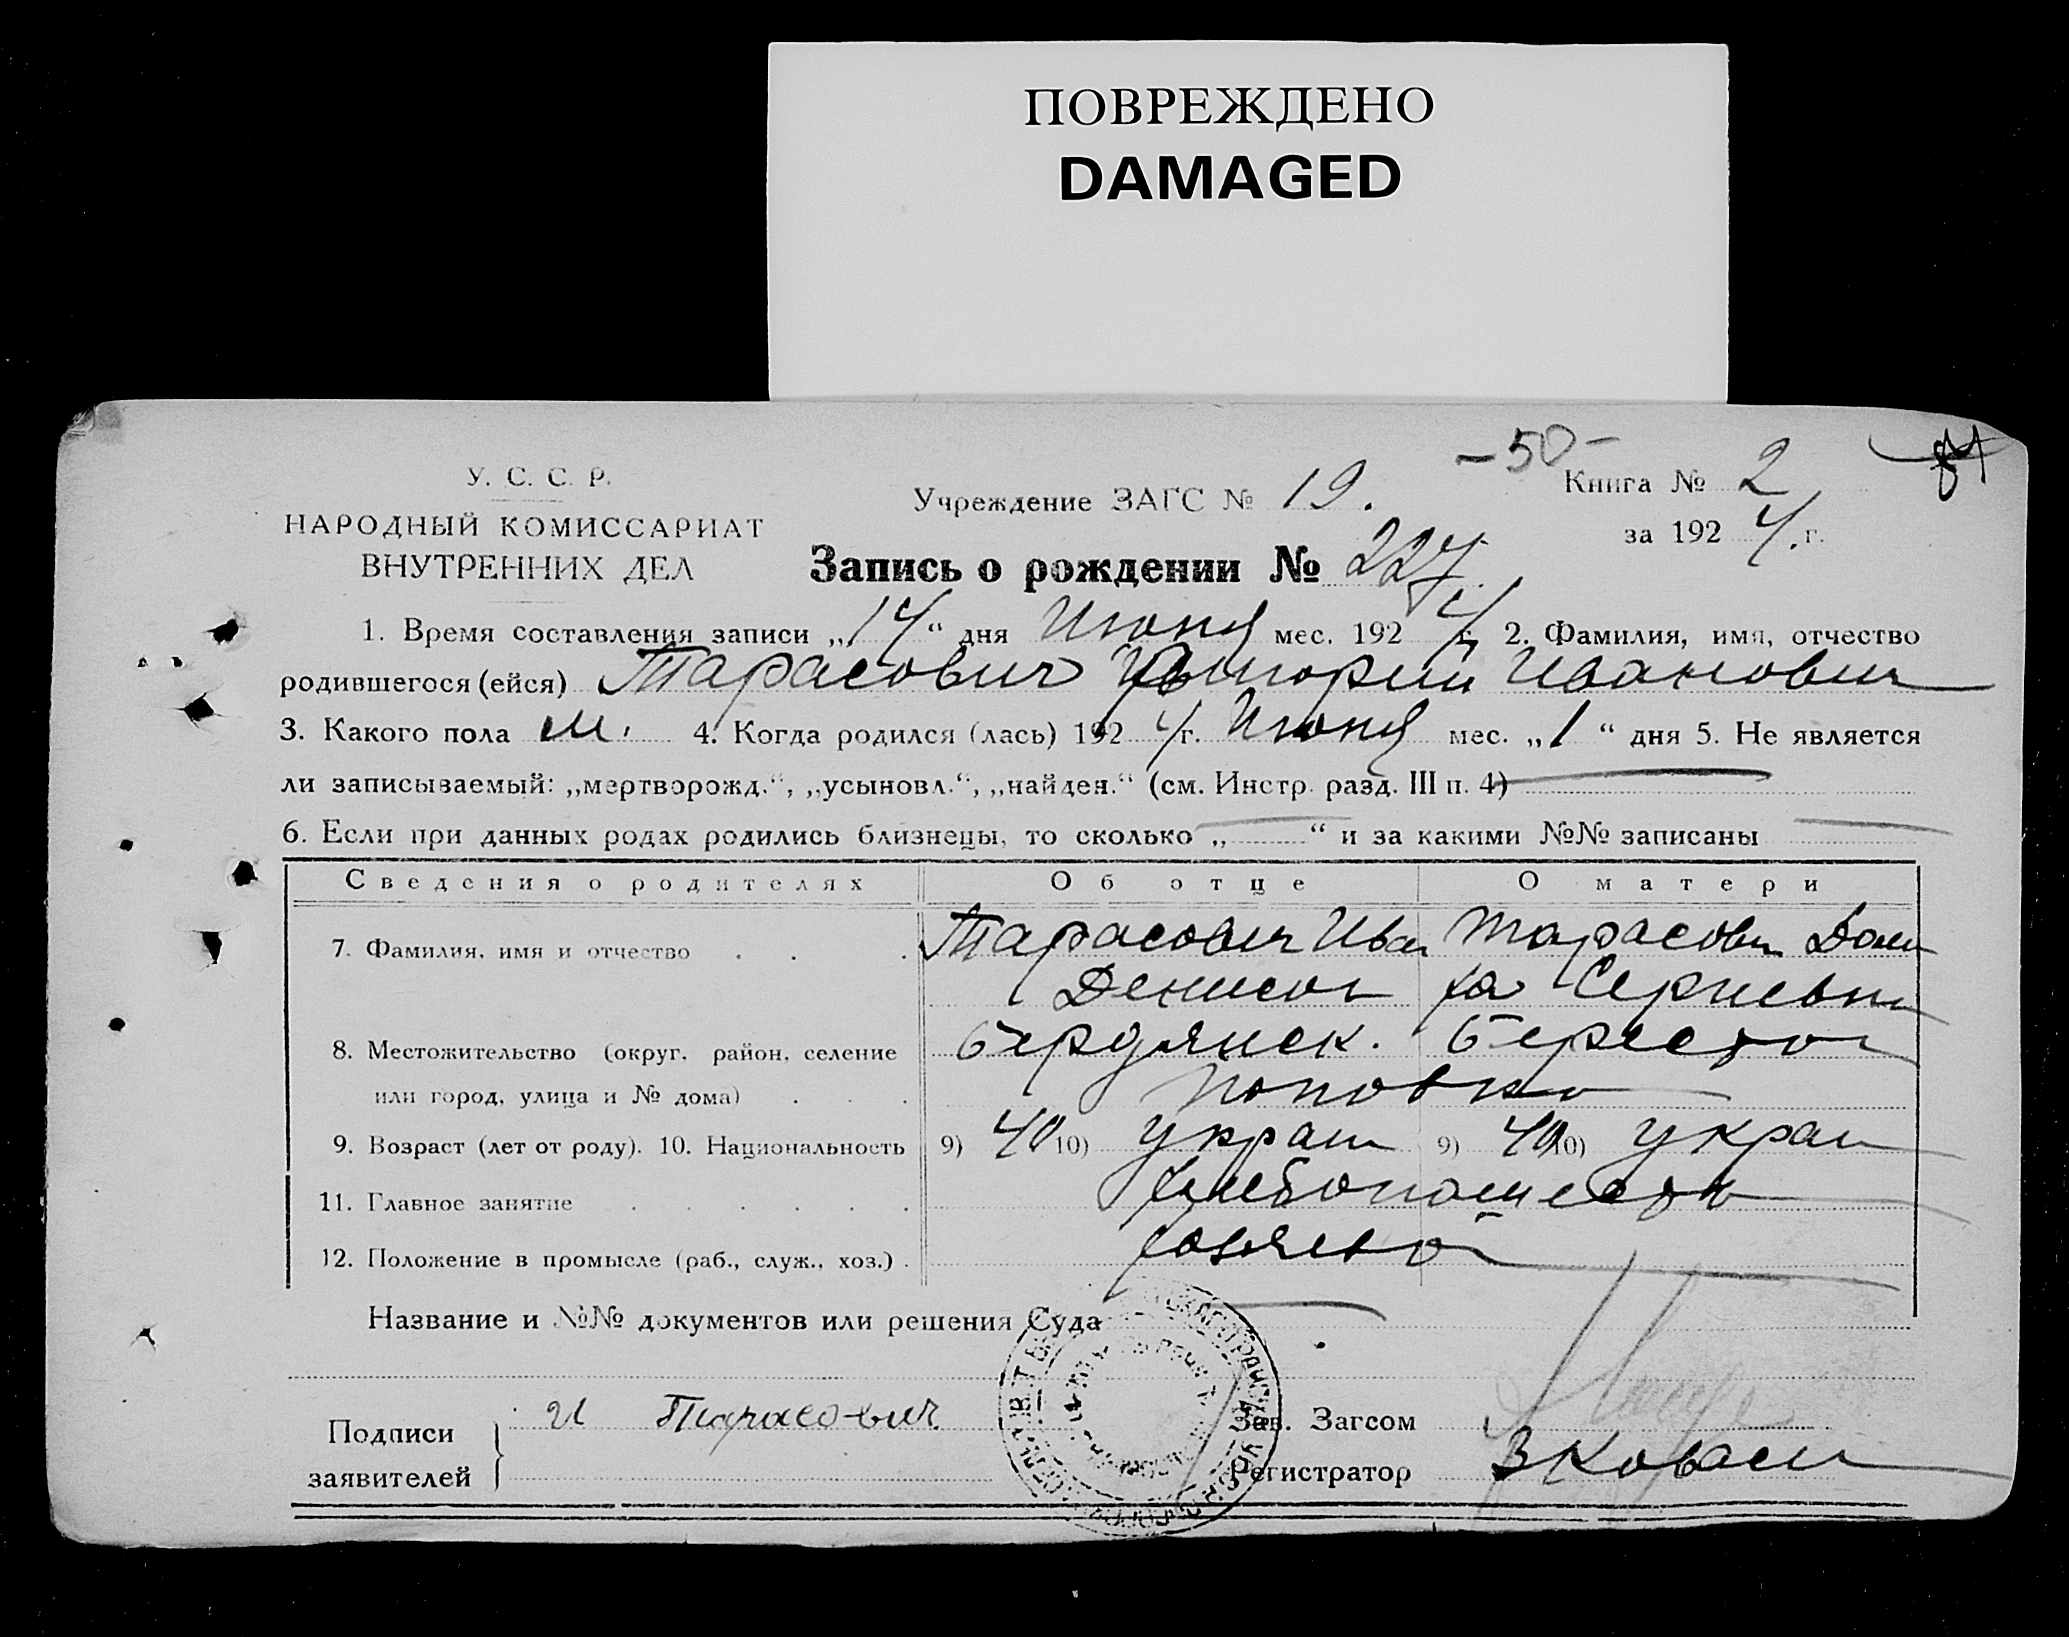 ПОВРЕЖДЕНО
DAMAGED
-50-
У. С. С. Р.
НАРОДНЫЙ КОМИССАРИАТ
ВНУТРЕННИХ ДЕЛ
Учреждение ЗАГС № 19.
Книга № 2
за 1924 г.
Запись о рождении № 227.
1. Время составления записи „14“ дня Июня мес. 1924 г. 2. Фамилия, имя, отчество
родившегося (ейся) Тарасович Григорий Иванович
3. Какого пола м. 4. Когда родился (лась) 1924 г. Июня мес. „1“ дня 5. Не является
ли записываемый: „мертворожд.“, „усыновл.“, „найден.“ (см. Инстр. разд. III п. 4) —
6. Если при данных родах родились близнецы, то сколько „—“ и за какими №№ записаны —
Сведения о родителях Об отце О матери
7. Фамилия, имя и отчество Тарасович Иван Тарасович Дом
Денисов ха Сергиевна
8. Местожительство (округ, район, селение Бердянск. Берестов
или город, улица и № дома) Поповка
9. Возраст (лет от роду). 10. Национальность 9) 40 10) украин 9) 40 10) украин
11. Главное занятие хлебопашество
12. Положение в промысле (раб., служ., хоз.) хозяева
Название и №№ документов или решения Суда —
Подписи
заявителей
И Тарасович
Зав. Загсом
Регистратор